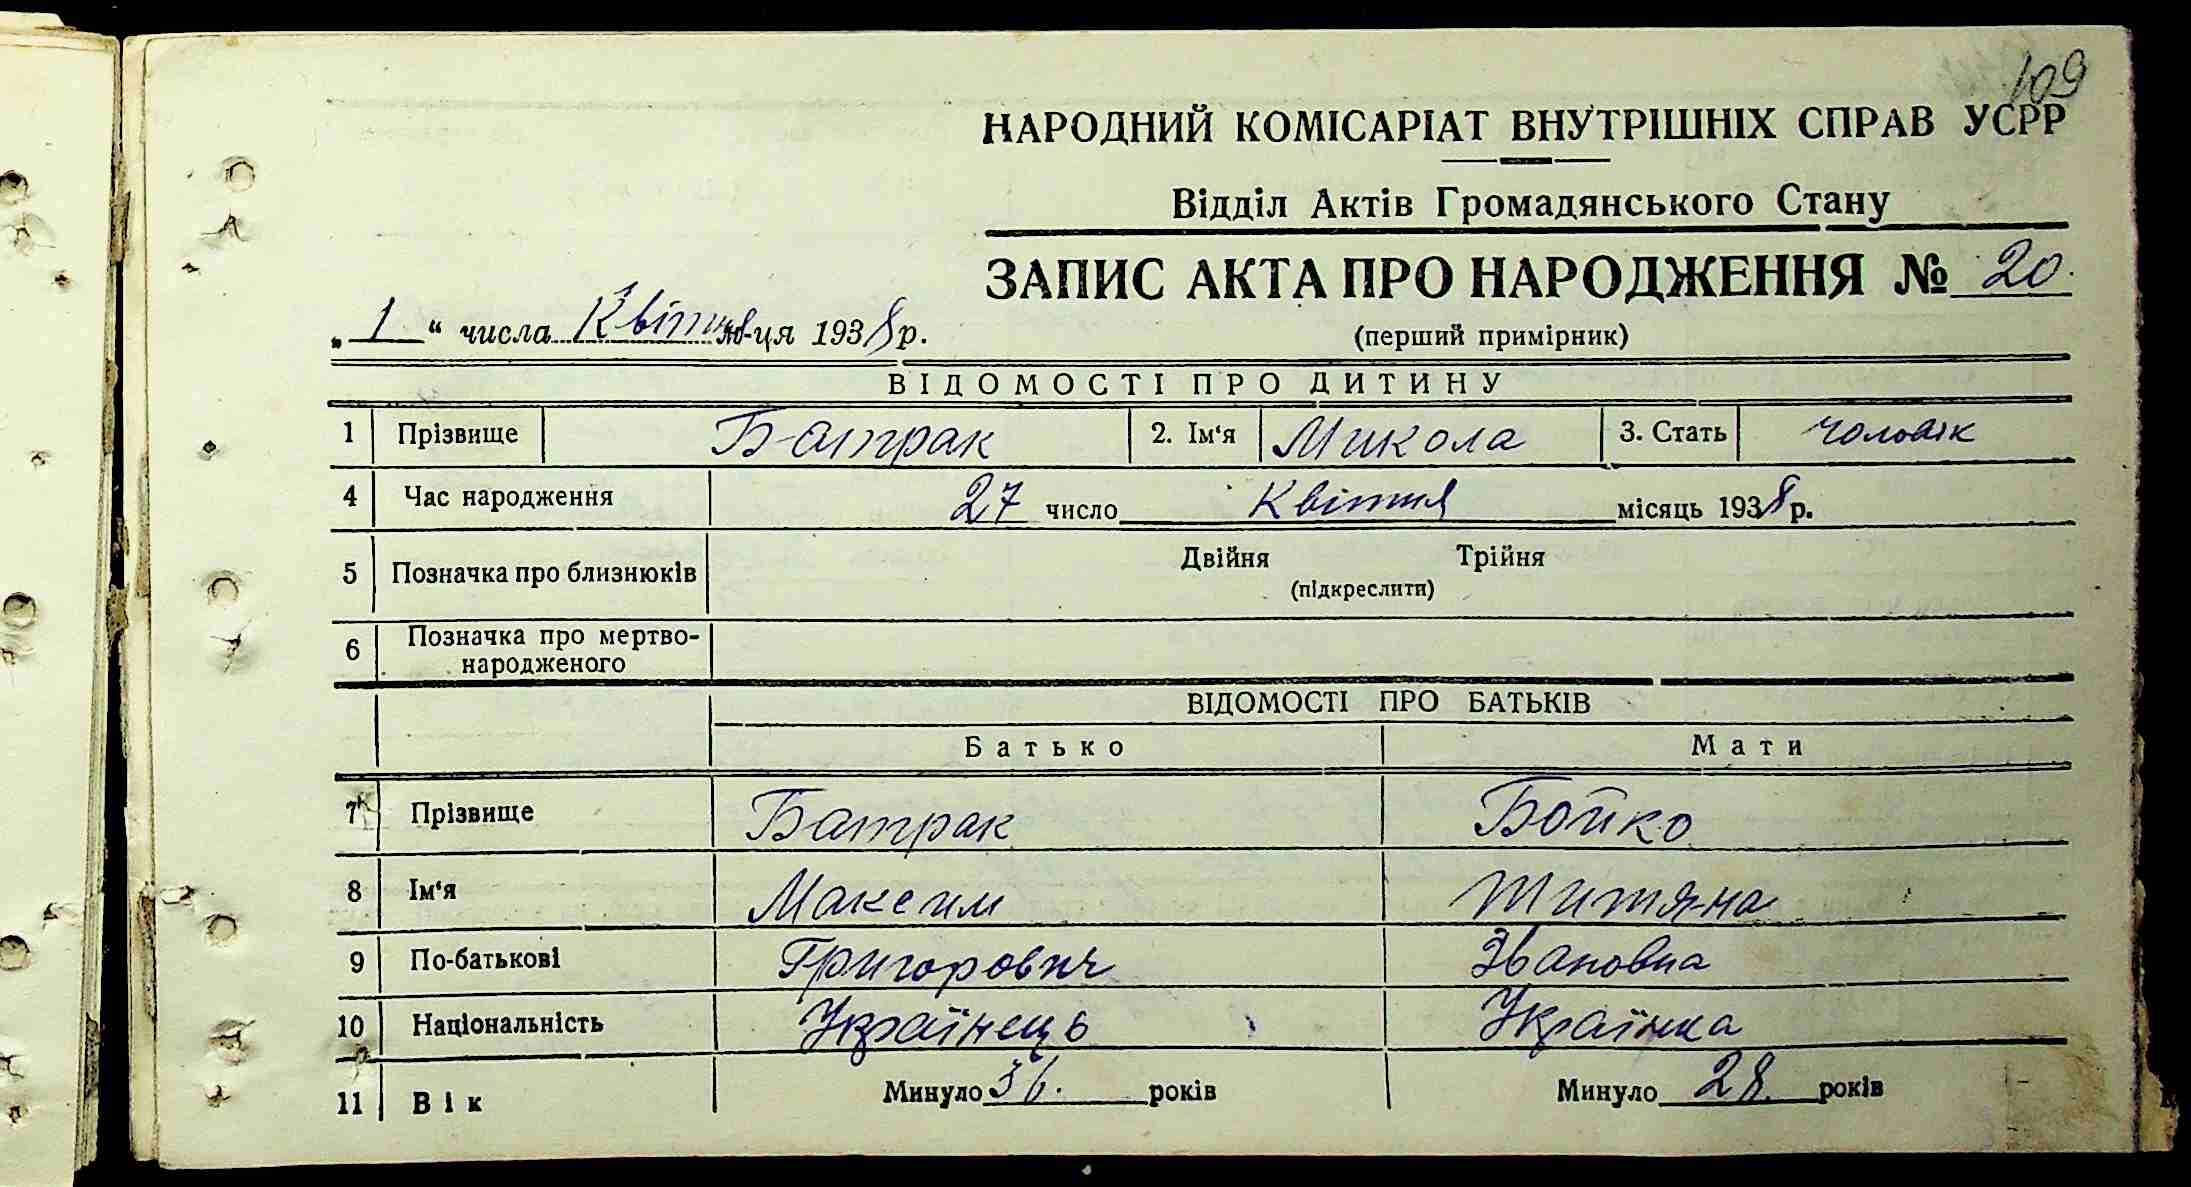 109
НАРОДНИЙ КОМІСАРІАТ ВНУТРІШНІХ СПРАВ УСРР
Відділ Актів Громадянського Стану
ЗАПИС АКТА ПРО НАРОДЖЕННЯ № 20.
„ 1 “ числа Квітня м-ця 1938 р.
(перший примірник)
ВІДОМОСТІ ПРО ДИТИНУ
1 Прізвище Батрак 2. Ім‘я Микола 3. Стать чоловік
4 Час народження 27 число Квітня місяць 1938 р.
5 Позначка про близнюків Двійня Трійня
(підкреслити)
6 Позначка про мертво-
народженого
ВІДОМОСТІ ПРО БАТЬКІВ
Батько Мати
7 Прізвище Батрак Бойко
8 Ім‘я Максим Титяна
9 По-батькові Григорович Івановна
10 Національність Українець Українка
11 Вік Минуло 36. років Минуло 28. років